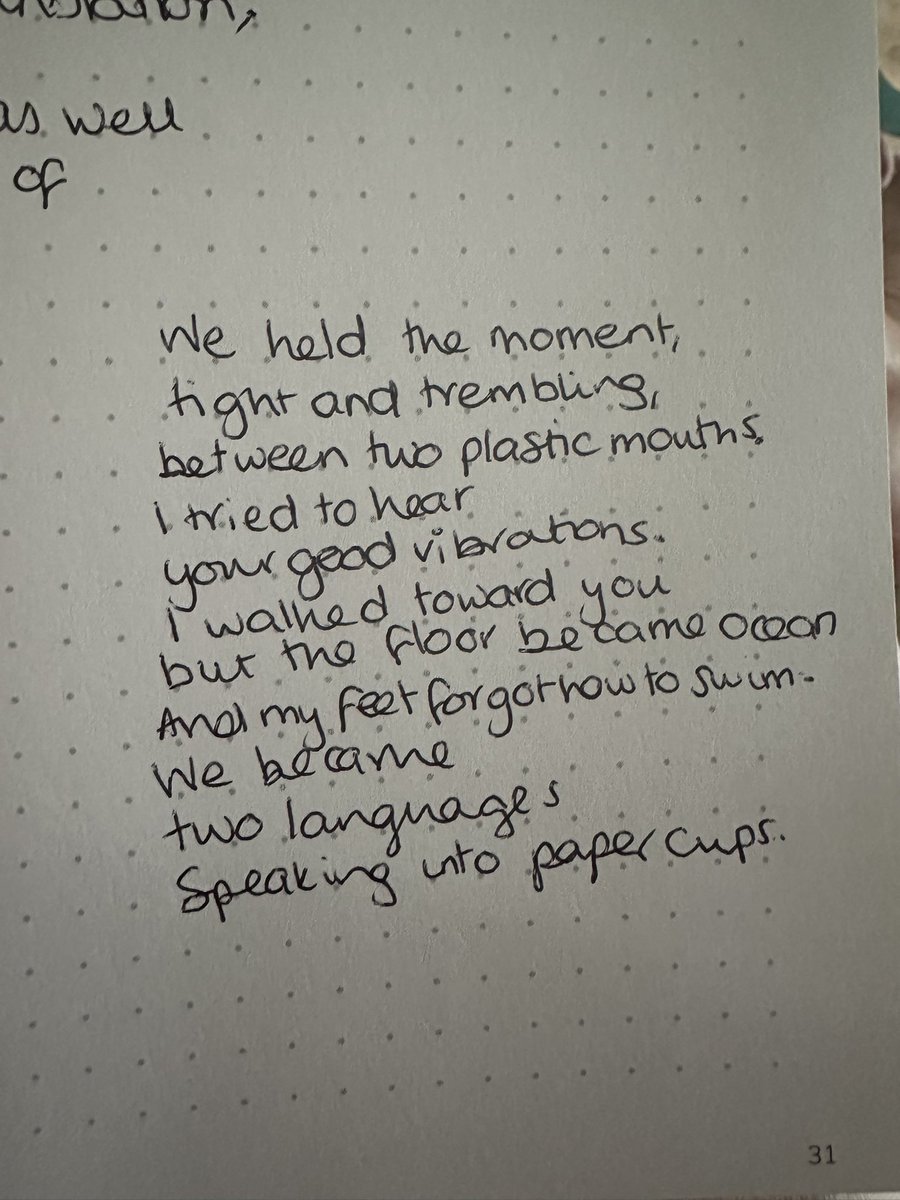 as well
of
We held the moment,
tight and trembling,
between two plastic mouths.
I tried to hear
your good vibrations.
I walked toward you
but the floor became ocean
And my feet forgot how to swim.
We became
two languages
Speaking into paper cups.
31